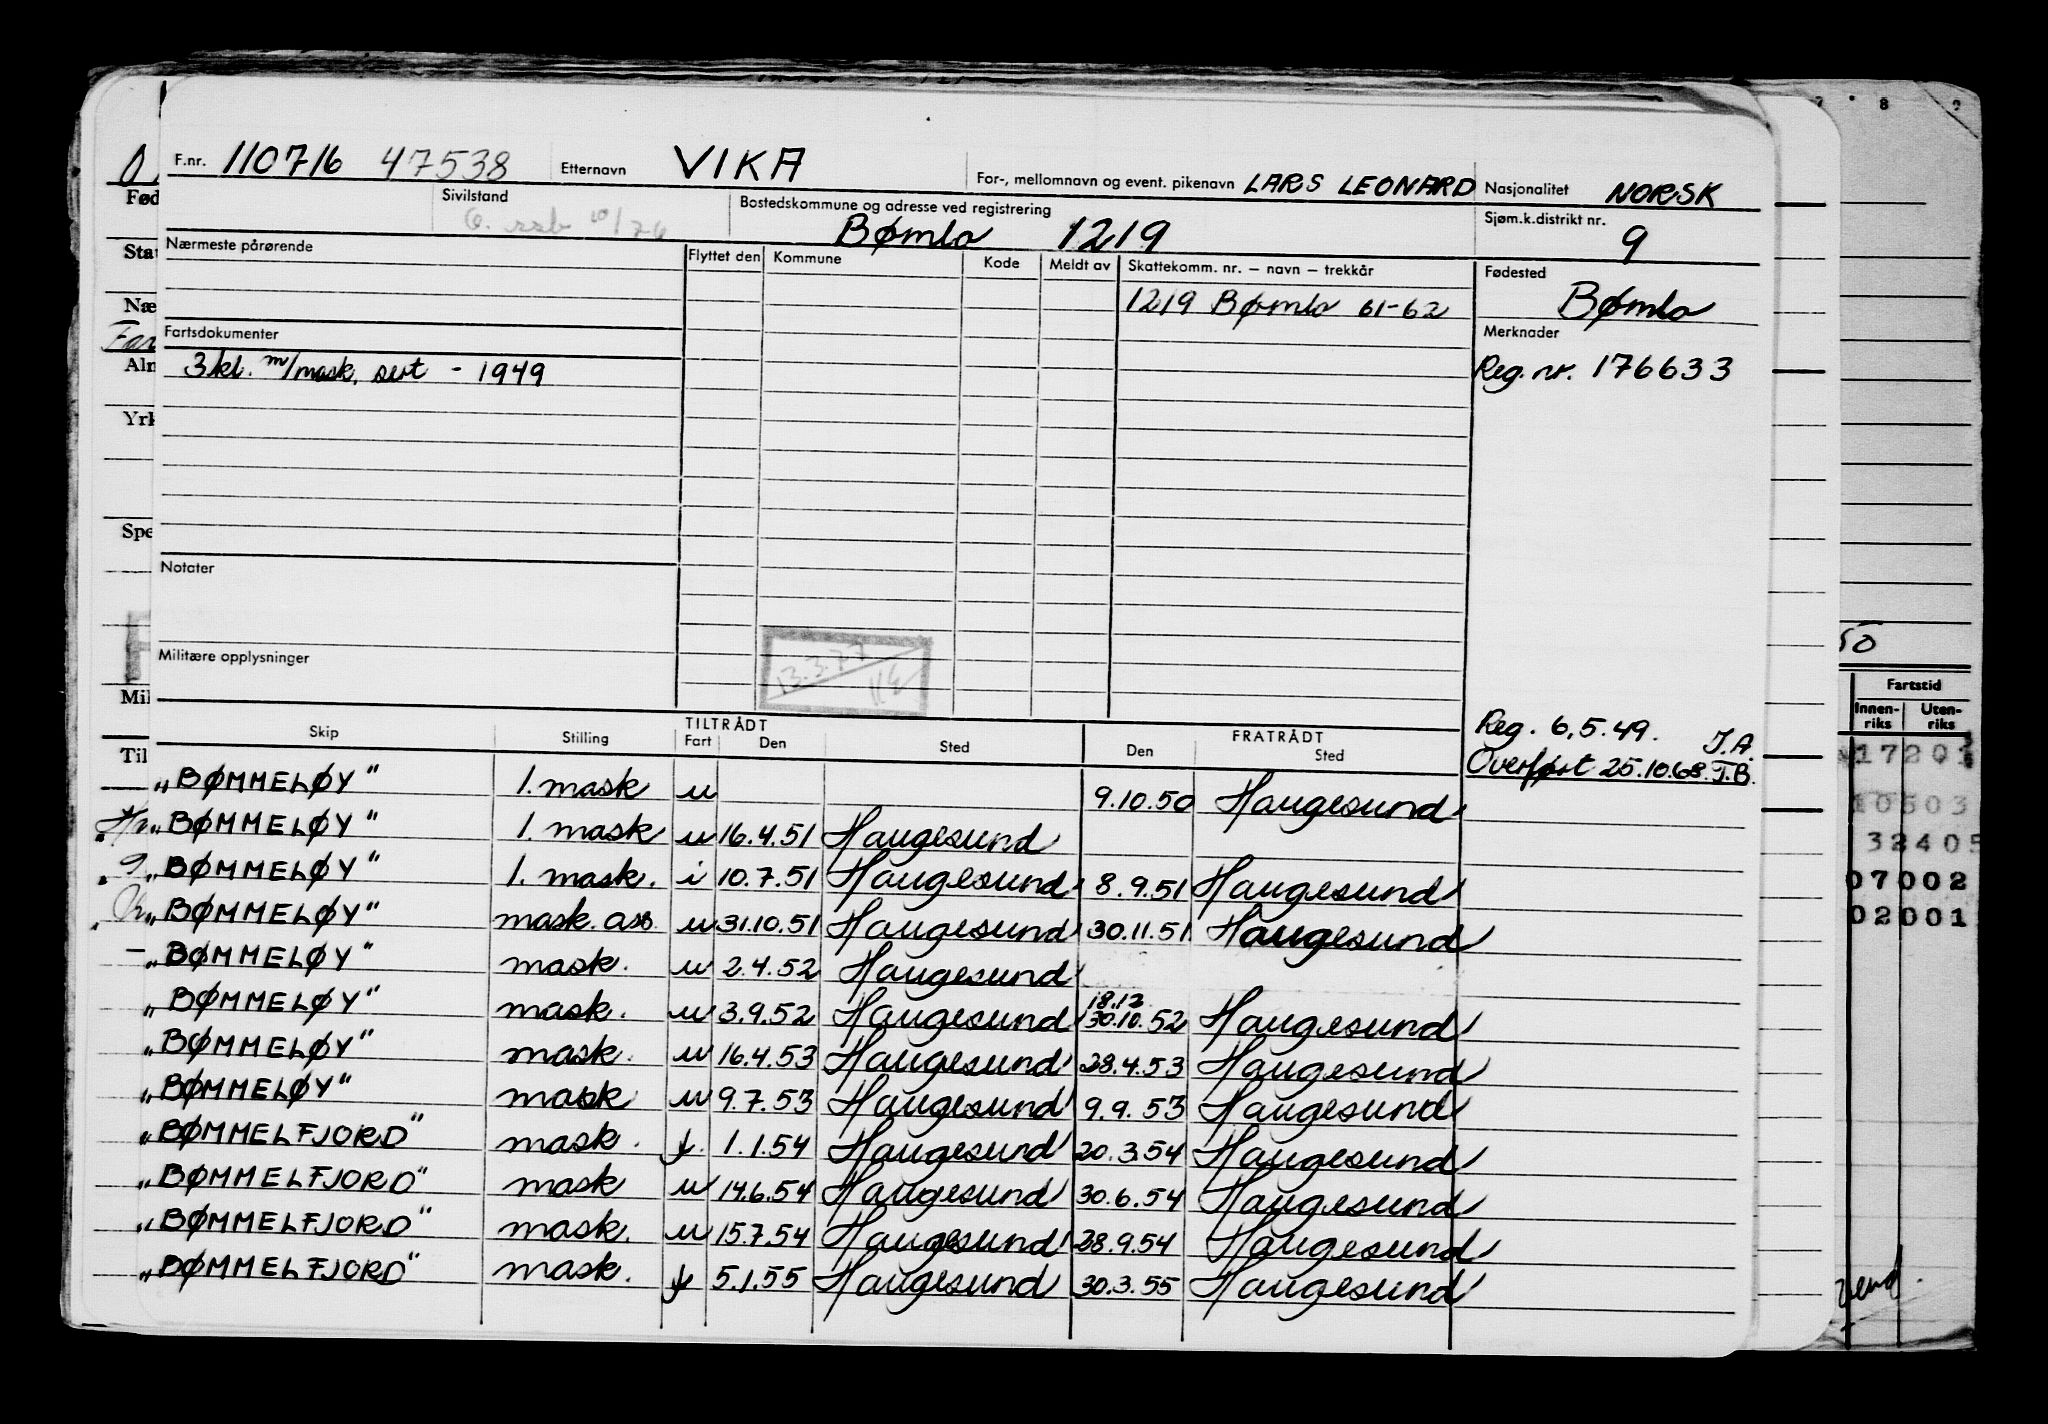 F.nr. 110716 47538 Etternavn VIKA For-, mellomnavn og event. pikenavn LARS LEONARD Nasjonalitet NORSK
Sivilstand Bostedskommune og adresse ved registrering Bømlo 1219 Sjøm.k.distrikt nr. 9
Nærmeste pårørende Flyttet den Kommune Kode Meldt av Skattekomm. nr. – navn – trekkår Fødested
1219 Bømlo 61-62 Bømlo
Fartsdokumenter Merknader
3 kl. m/mask. sert - 1949 Reg. nr. 176633
Notater
Militære opplysninger
13.3.77
Reg. 6.5.49. J.A.
Overført 25.10.68. T.B.
TILTRÅDT FRATRÅDT
Skip Stilling Fart Den Sted Den Sted
„BØMMELØY" 1. mask u 9.10.50 Haugesund
„BØMMELØY" 1. mask u 16.4.51 Haugesund
„BØMMELØY" 1. mask. i 10.7.51 Haugesund 8.9.51 Haugesund
„BØMMELØY" mask. ass u 31.10.51 Haugesund 30.11.51 Haugesund
„BØMMELØY" mask. u 2.4.52 Haugesund
„BØMMELØY" mask. u 3.9.52 Haugesund 18.12 30.10.52 Haugesund
„BØMMELØY" mask. u 16.4.53 Haugesund 28.4.53 Haugesund
„BØMMELØY" mask u 9.7.53 Haugesund 9.9.53 Haugesund
„BØMMELFJORD" mask. f. 1.1.54 Haugesund 20.3.54 Haugesund
„BØMMELFJORD" mask u 14.6.54 Haugesund 30.6.54 Haugesund
„BØMMELFJORD" mask. u 15.7.54 Haugesund 28.9.54 Haugesund
„BØMMELFJORD" mask. f 5.1.55 Haugesund 30.3.55 Haugesund
Fød
Stat
Næ
Far
Alm
Yrk
Spe
Mil
Til
7 8 9
50
Fartstid
Innen-riks Uten-riks
17201
10503
32405
07002
02001